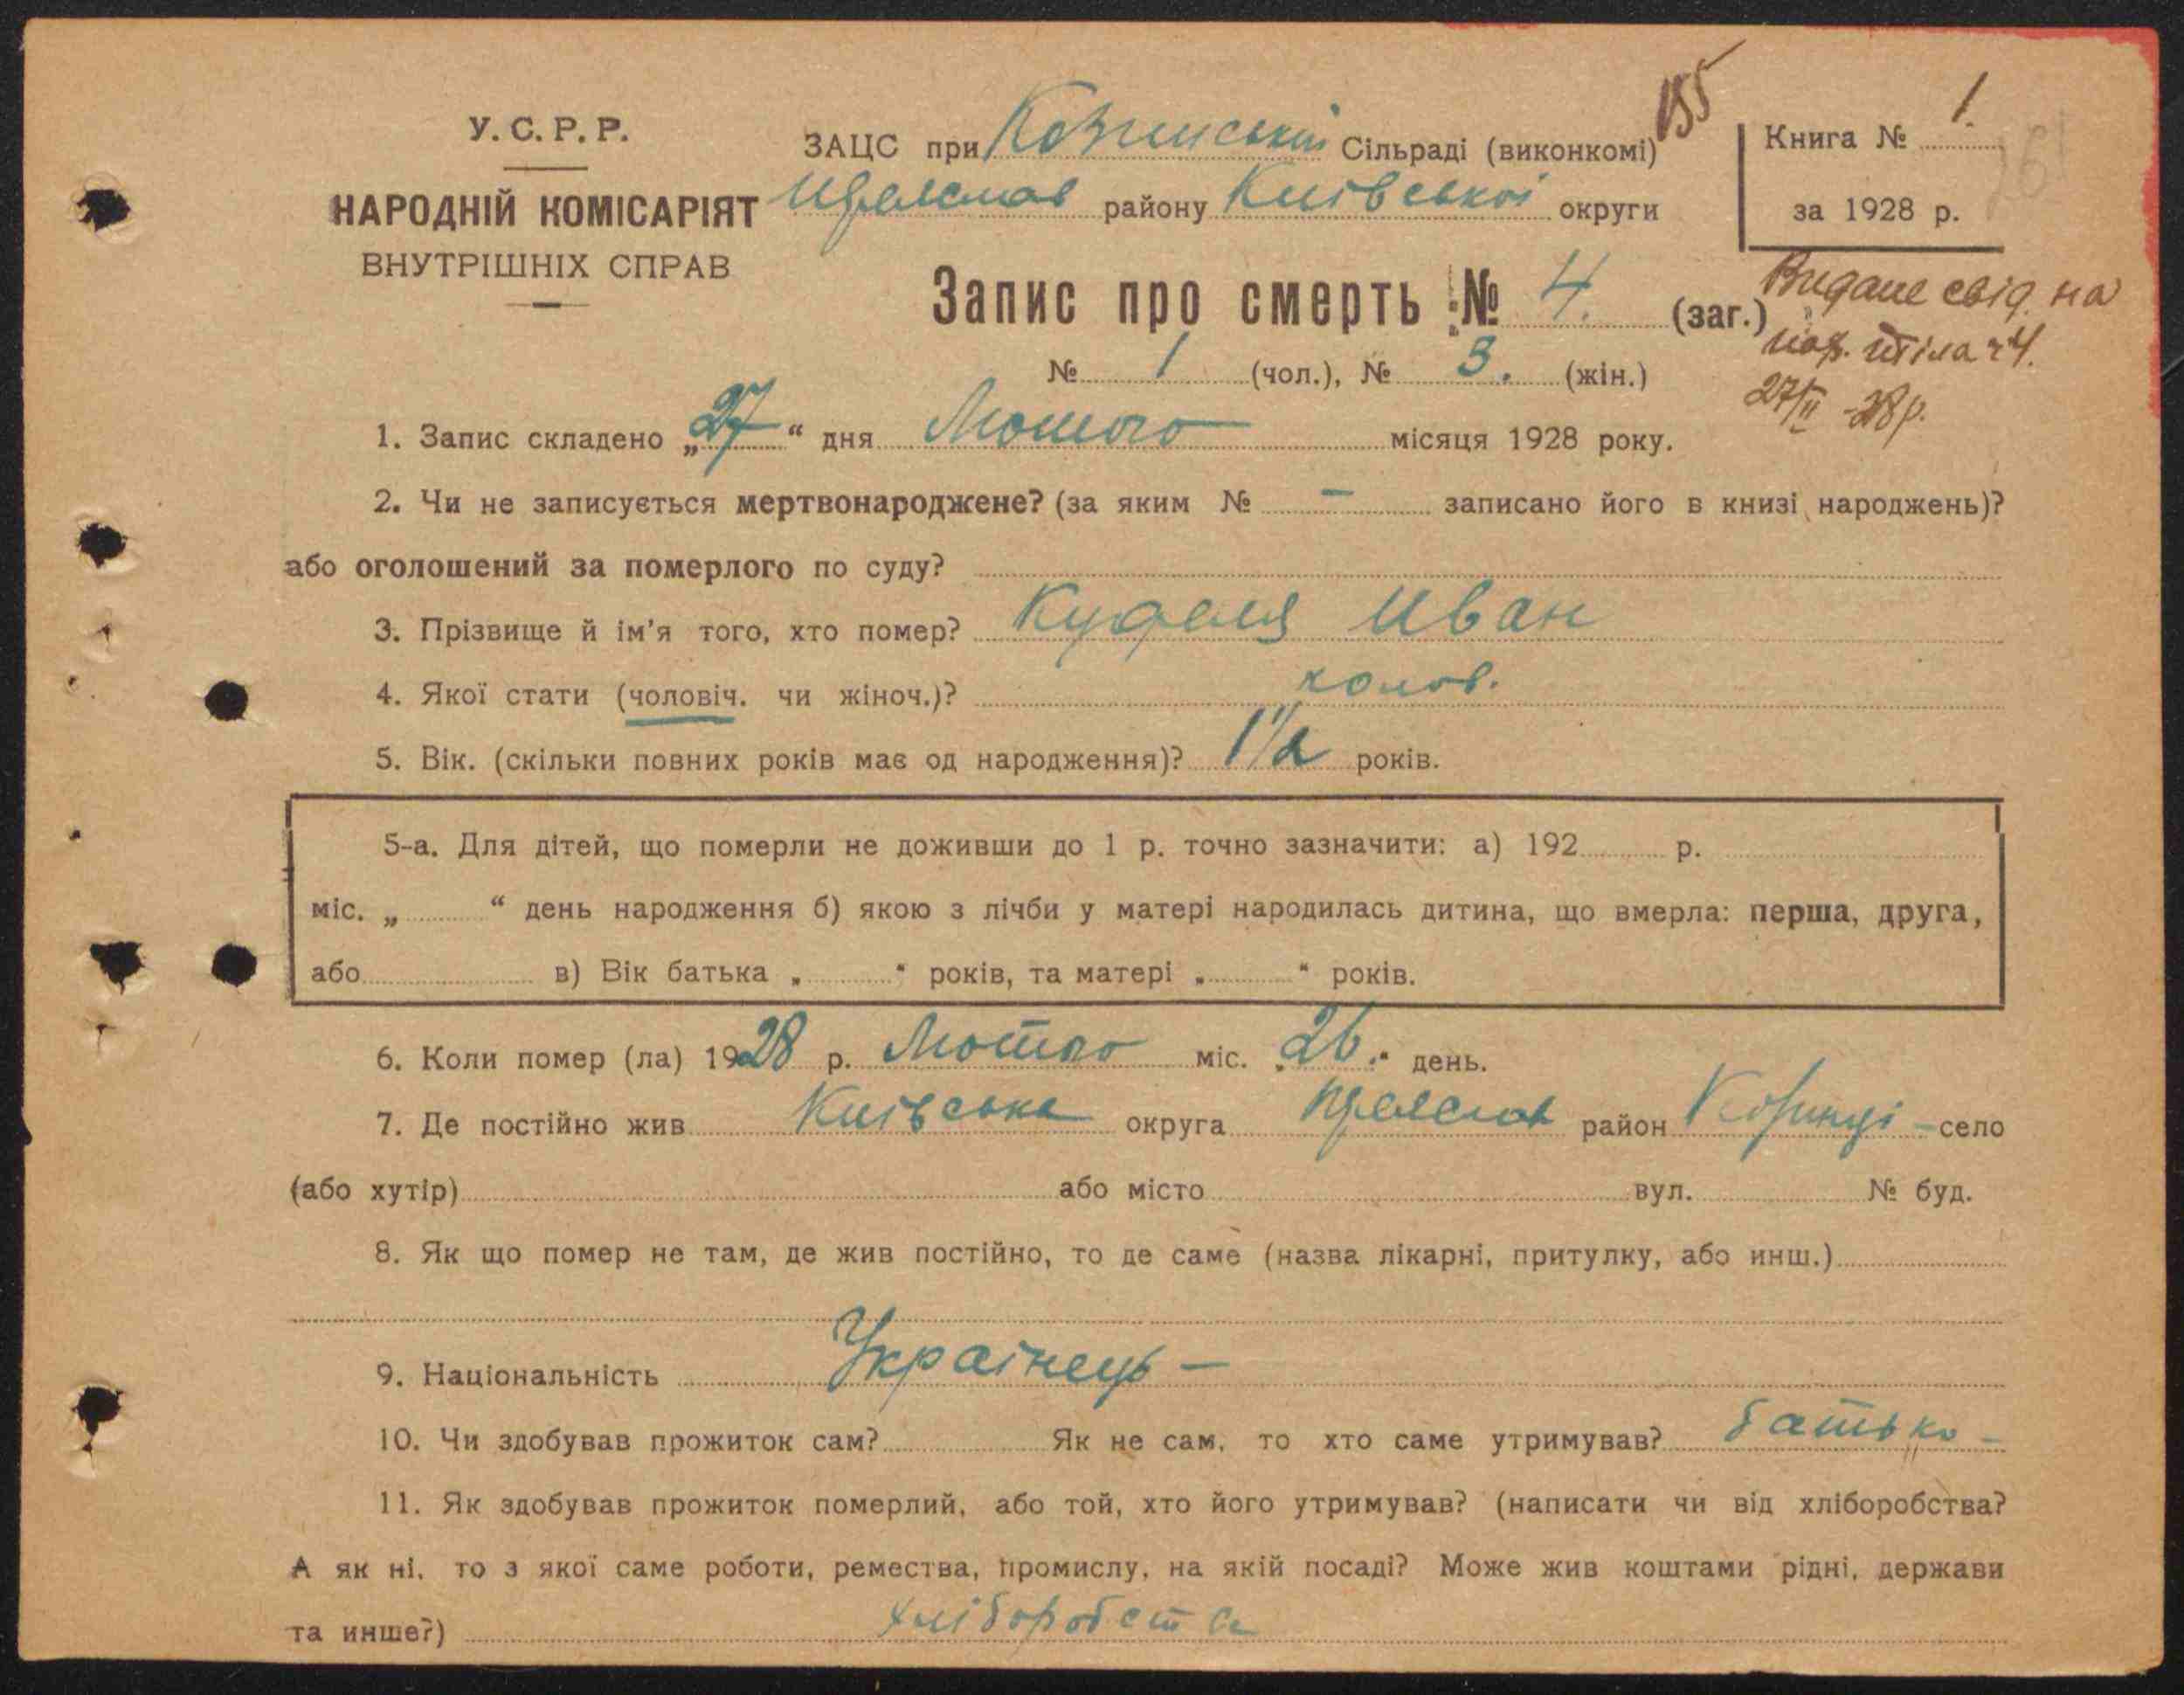 У. С. Р. Р.
НАРОДНІЙ КОМІСАРІЯТ
ВНУТРІШНІХ СПРАВ
ЗАЦС при Козинській Сільраді (виконкомі)
155
району Київської округи
Книга № 1.
за 1928 р.
Запис про смерть № 4. (заг.)
Видане свід. на
пох. тіла ч 4.
27/II -28р.
№ 1 (чол.), № 3. (жін.)
1. Запис складено „27“ дня Лютого місяця 1928 року.
2. Чи не записується мертвонароджене? (за яким № – записано його в книзі народжень)?
або оголошений за померлого по суду?
3. Прізвище й ім'я того, хто помер? Куделя Иван
4. Якої стати (чоловіч. чи жіноч.)? чолов.
5. Вік. (скільки повних років має од народження)? 1 1/2 років.
5-а. Для дітей, що померли не доживши до 1 р. точно зазначити: а) 192 р.
міс. „ “ день народження б) якою з лічби у матері народилась дитина, що вмерла: перша, друга,
або в) Вік батька „ “ років, та матері „ “ років.
6. Коли помер (ла) 1928 р. Лютого міс. „26.“ день.
7. Де постійно жив Київська округа район село
(або хутір) або місто вул. № буд.
8. Як що помер не там, де жив постійно, то де саме (назва лікарні, притулку, або инш.)
9. Національність Українець –
10. Чи здобував прожиток сам? Як не сам, то хто саме утримував? батько –
11. Як здобував прожиток померлий, або той, хто його утримував? (написати чи від хліборобства?
А як ні, то з якої саме роботи, ремества, промислу, на якій посаді? Може жив коштами рідні, держави
та инше?) хліборобства